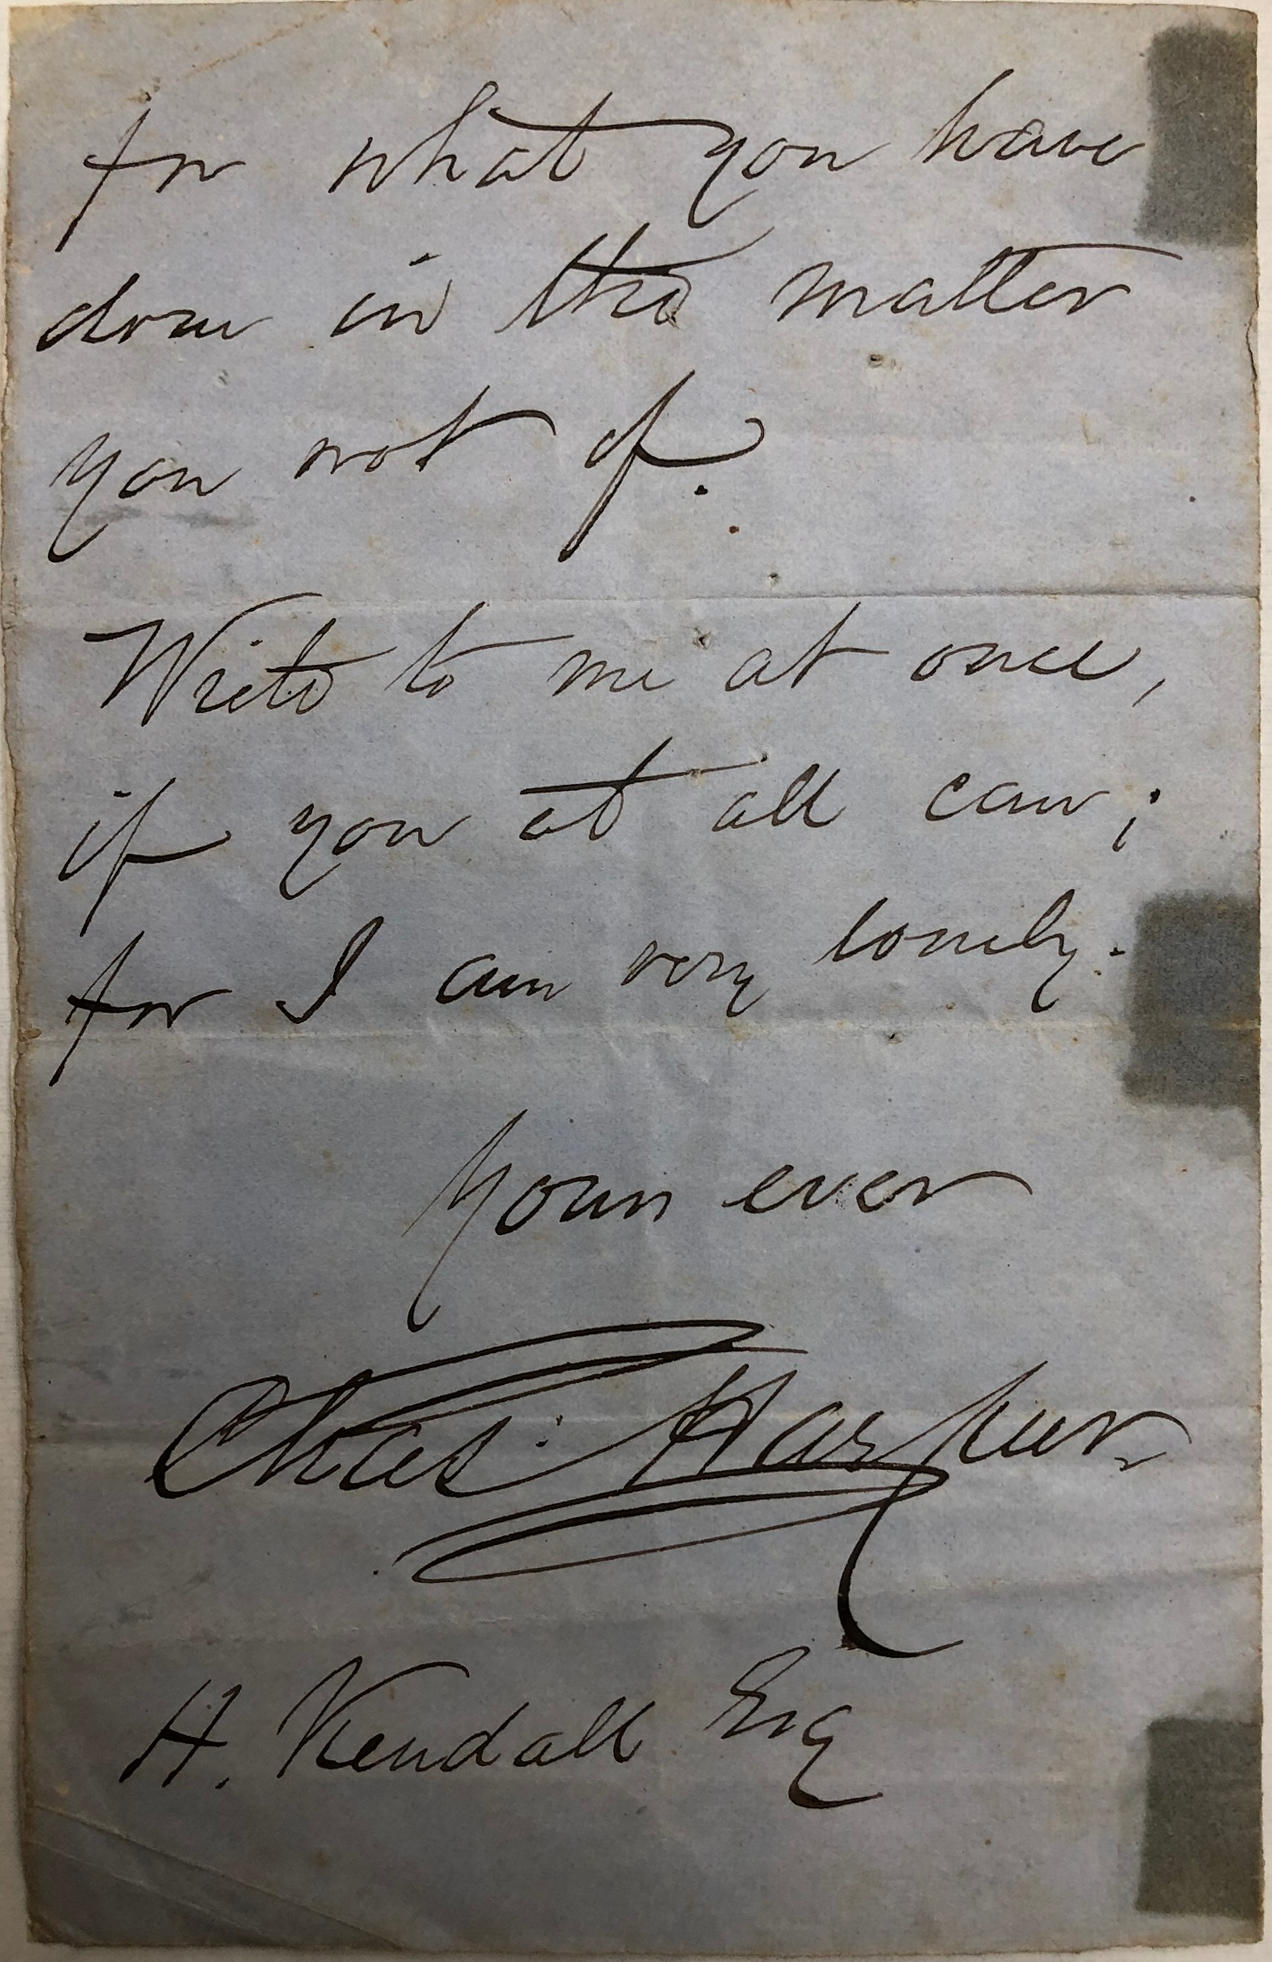 for what you have
done in the matter
you wot of.
Write to me at once,
if you at all can;
for I am very lonely.
Yours ever
Chas: Harpur
H. Kendall Esq